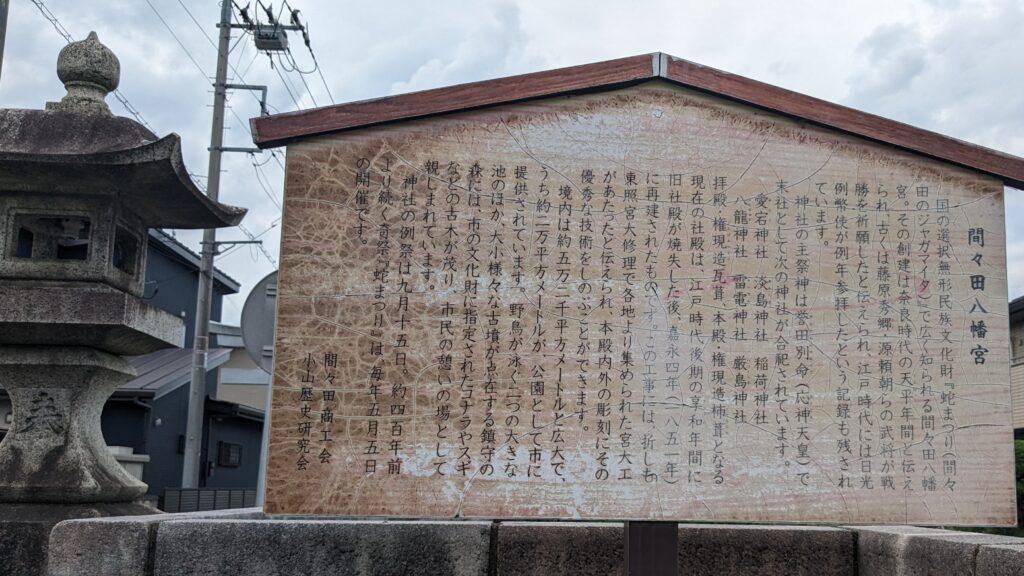 間々田八幡宮
国の選択無形民族文化財『蛇まつり(間々
田のジャガマイタ)』で広く知られる間々田八幡
宮。その創建は奈良時代の天平年間と伝え
られ、古くは藤原秀郷、源頼朝らの武将が戦
勝を祈願したと伝えられ、江戸時代には日光
例幣使が例年参拝したという記録も残され
ています。
神社の主祭神は誉田別命(応神天皇)で
末社として次の神社が合祀されています。
愛宕神社 淡島神社 稲荷神社
八龍神社 雷電神社 厳島神社
拝殿・権現造瓦葺、本殿・権現造柿葺となる
現在の社殿は、江戸時代後期の享和年間に
旧社殿が焼失した後、嘉永四年(一八五一年)
に再建されたものです。この工事には、折しも
東照宮大修理で各地より集められた宮大工
があたったと伝えられ、本殿内外の彫刻にその
優秀な技術をしのぶことができます。
境内は約五万二千平方メートルと広大で、
うち約二万平方メートルが、公園として市に
提供されています。野鳥が泳ぐ二つの大きな
池のほか、大小様々な古墳が点在する鎮守の
森には、市の文化財に指定されたコナラやスギ
などの古木が茂り、市民の憩いの場として
親しまれています。
神社の例祭は九月十五日、約四百年前
より続く奇祭『蛇まつり』は、毎年五月五日
の開催です。
間々田商工会
小山歴史研究会